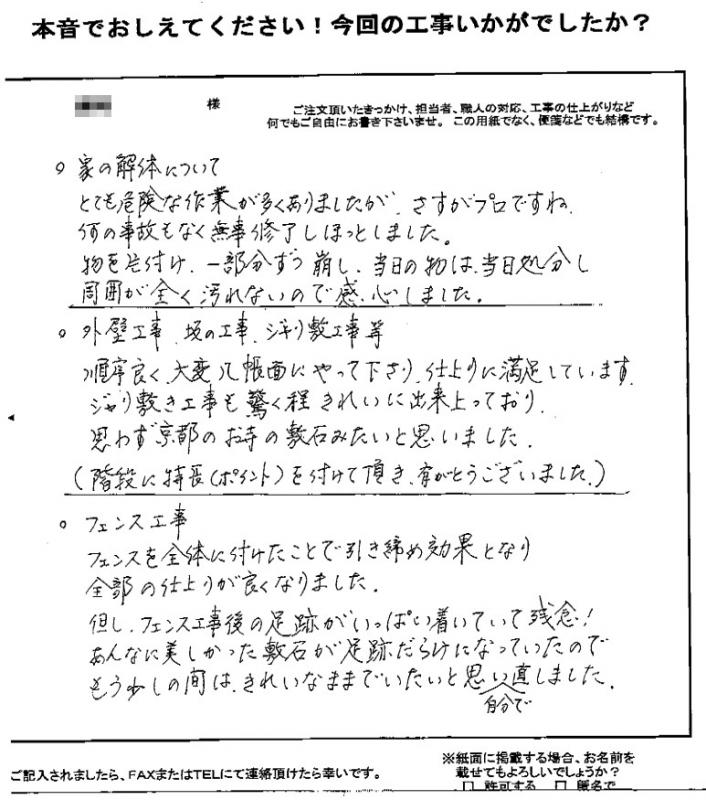 本音でおしえてください！今回の工事いかがでしたか？
様
ご注文頂いたきっかけ、担当者、職人の対応、工事の仕上がりなど
何でもご自由にお書き下さいませ。この用紙でなく、便箋などでも結構です。
○ 家の解体について
とても危険な作業が多くありましたが、さすがプロですね、
何の事故もなく無事修了しほっとしました。
物を片付け、一部分ずつ崩し、当日の物は、当日処分し
周囲が全く汚れないので感心しました。
○ 外壁工事、坂の工事、ジャリ敷工事等
順序良く、大変几帳面にやって下さり、仕上りに満足しています。
ジャリ敷き工事も驚く程きれいに出来上っており、
思わず京都のお寺の敷石みたいと思いました。
(階段に特長(ポイント)を付けて頂き、有がとうございました。)
○ フェンス工事
フェンスを全体に付けたことで引き締め効果となり
全部の仕上りが良くなりました。
但し、フェンス工事後の足跡がいっぱい着いていて残念!
あんなに美しかった敷石が足跡だらけになっていたので
もう少しの間は、きれいなままでいたいと思い直しました。
自分で
※紙面に掲載する場合、お名前を
ご記入されましたら、FAXまたはTELにて連絡頂けたら幸いです。
載せてもよろしいでしょうか？
□ 許可する □ 匿名で